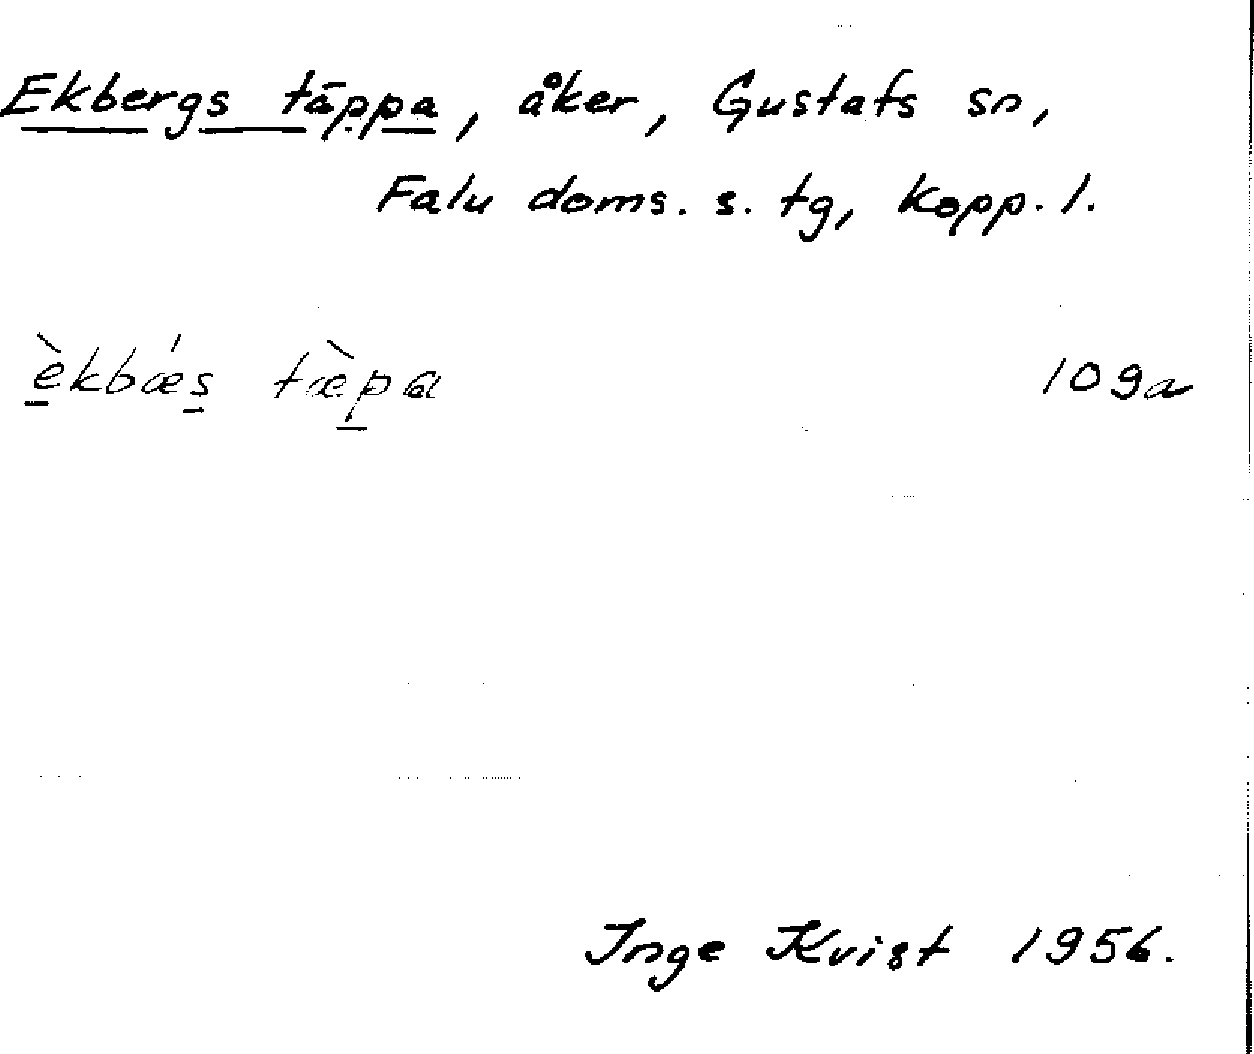 Ekbergs täppa, åker, Gustafs sn,
Falu doms. s. tg, Kopp. l.
è̱kbǽs̱ tæ̀p̱a 109a
Inge Kvist 1956.